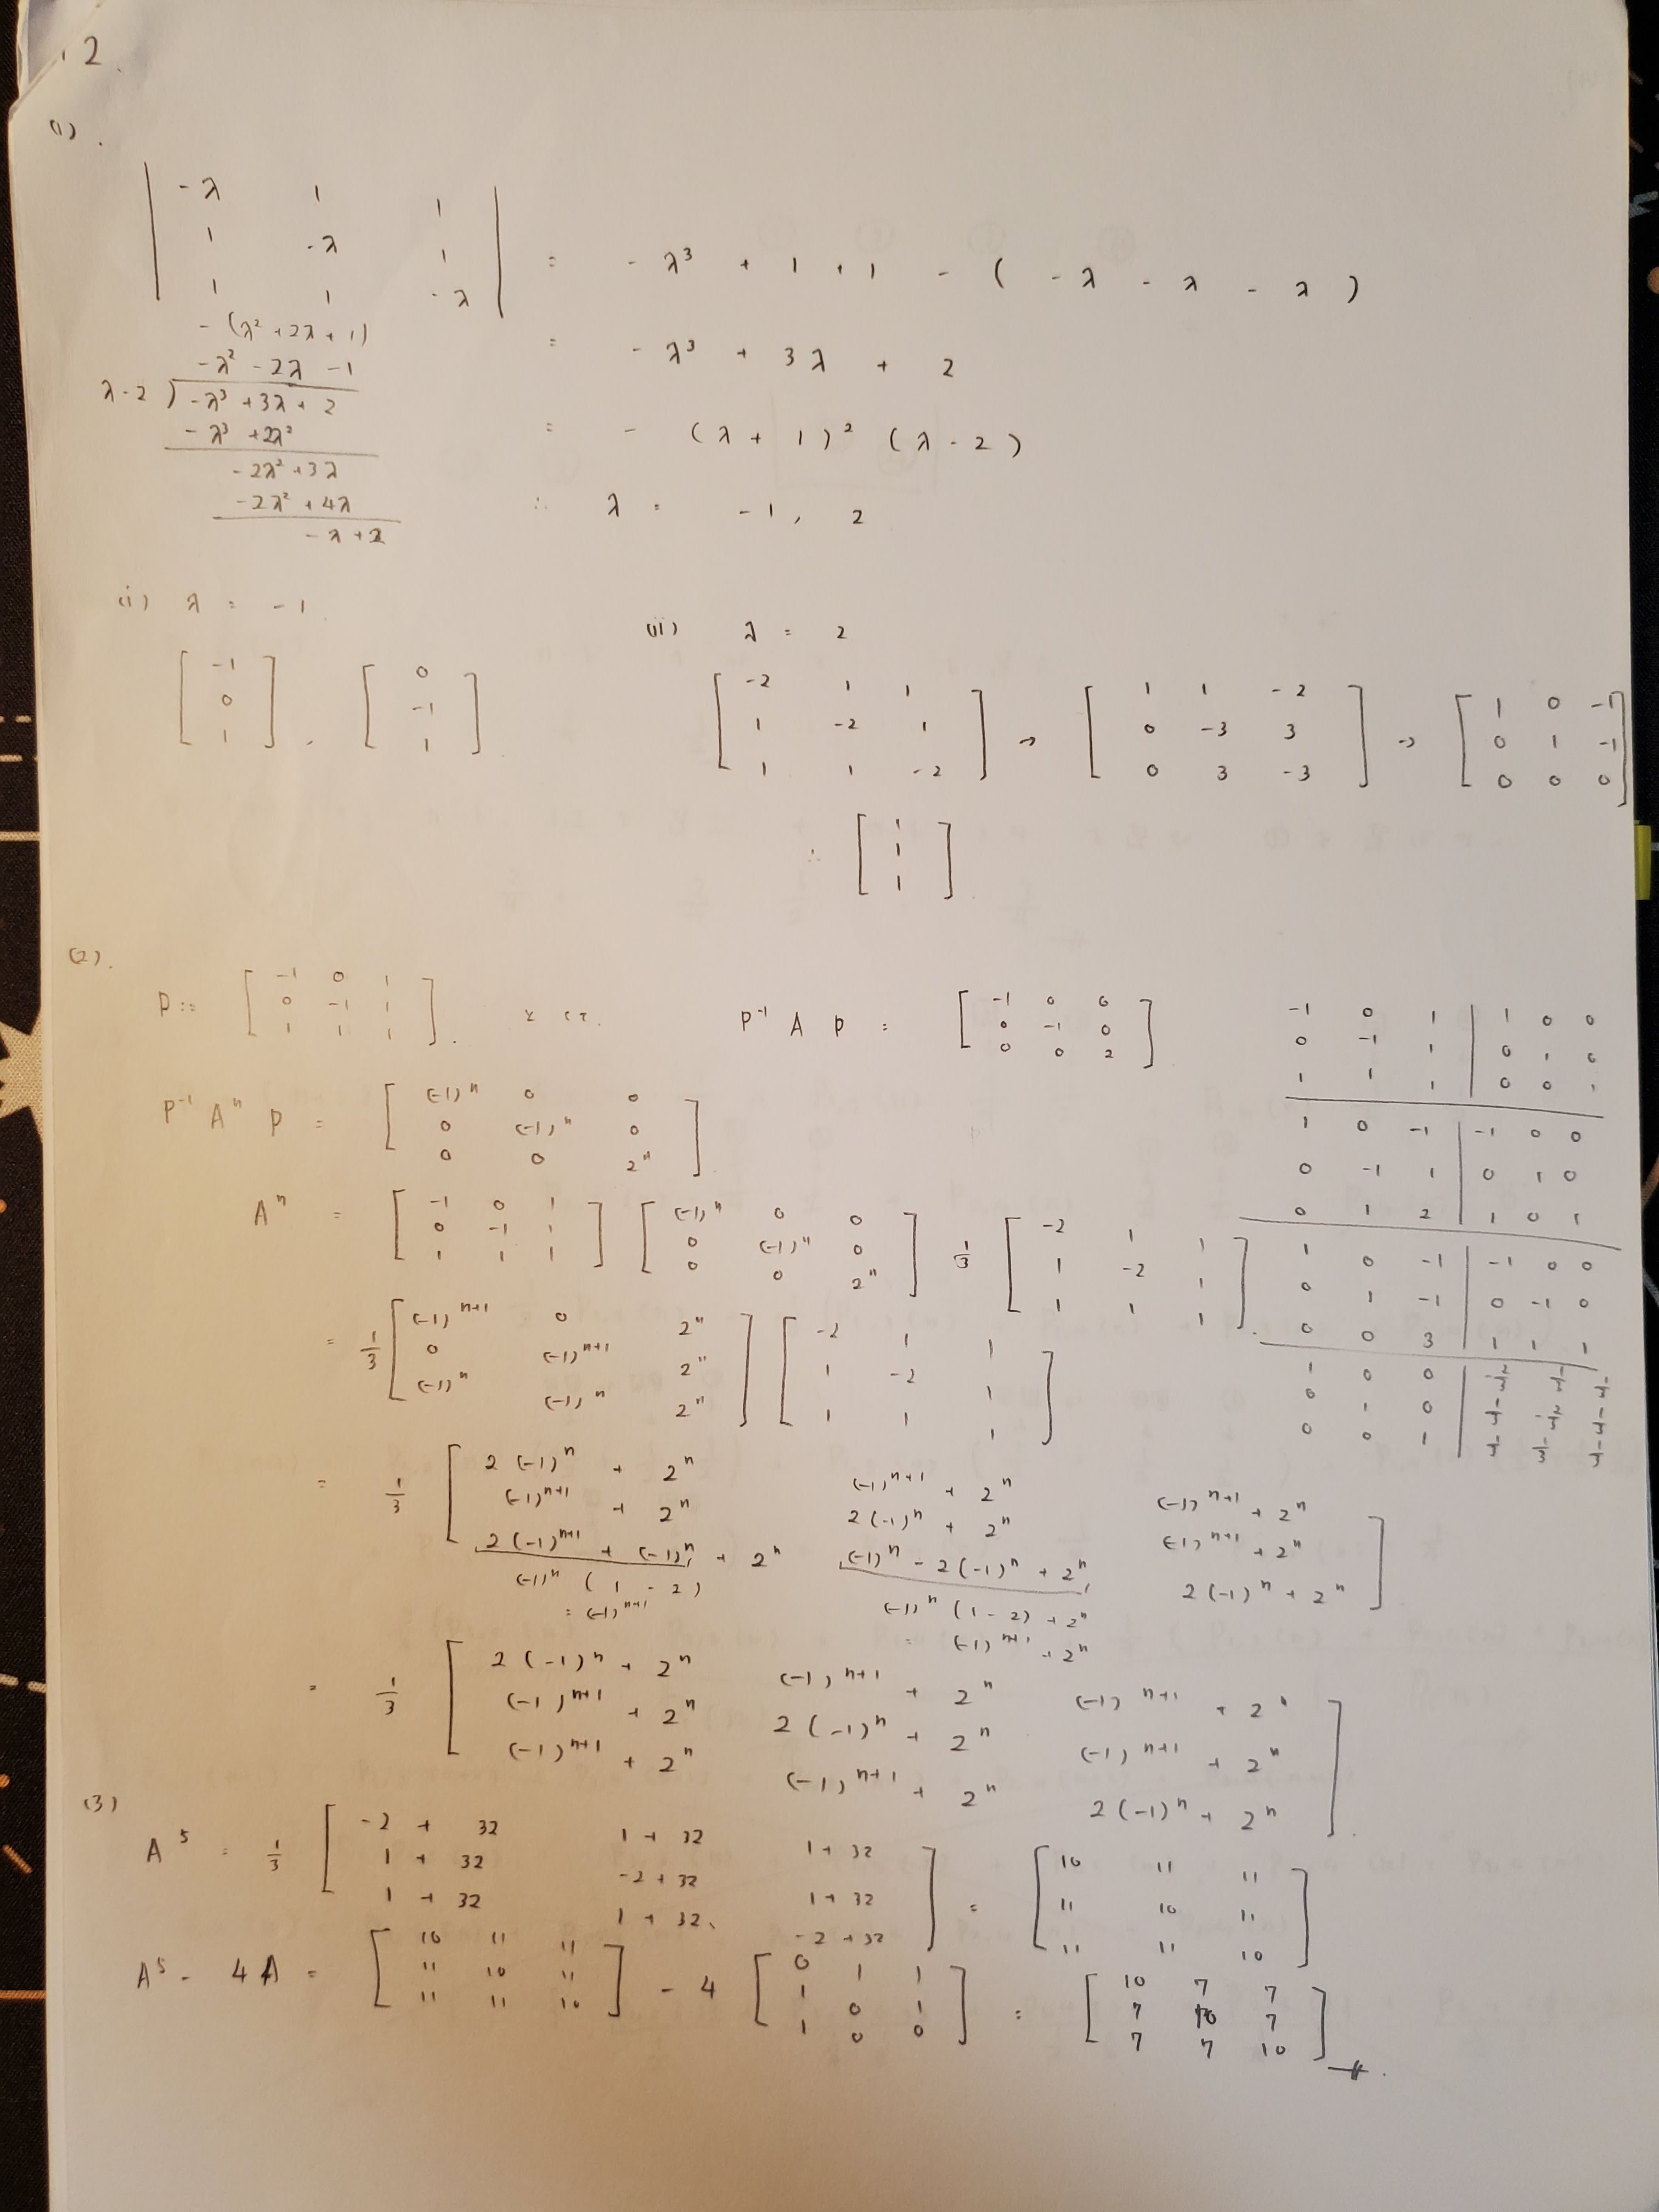 2.
(1).
| -λ 1 1 |
| 1 -λ 1 | = - λ³ + 1 + 1 - ( - λ - λ - λ )
| 1 1 -λ |
= - λ³ + 3λ + 2
= - (λ + 1)² (λ - 2)
∴ λ = -1, 2
- (λ² + 2λ + 1)
-λ² - 2λ - 1
λ-2 ) -λ³ + 3λ + 2
-λ³ + 2λ²
-2λ² + 3λ
-2λ² + 4λ
-λ + 2
(i) λ = -1.
[ -1 ] , [ 0 ]
[ 0 ] [ -1 ]
[ 1 ] [ 1 ]
(ii) λ = 2
[ -2 1 1 ] → [ 1 1 -2 ] → [ 1 0 -1 ]
[ 1 -2 1 ] [ 0 -3 3 ] [ 0 1 -1 ]
[ 1 1 -2 ] [ 0 3 -3 ] [ 0 0 0 ]
∴ [ 1 ]
[ 1 ]
[ 1 ]
(2).
P := [ -1 0 1 ] とすると P⁻¹ A P = [ -1 0 0 ]
[ 0 -1 1 ] [ 0 -1 0 ]
[ 1 1 1 ]. [ 0 0 2 ]
P⁻¹ Aⁿ P = [ (-1)ⁿ 0 0 ]
[ 0 (-1)ⁿ 0 ]
[ 0 0 2ⁿ ]
Aⁿ = [ -1 0 1 ] [ (-1)ⁿ 0 0 ] 1/3 [ -2 1 1 ]
[ 0 -1 1 ] [ 0 (-1)ⁿ 0 ] [ 1 -2 1 ]
[ 1 1 1 ] [ 0 0 2ⁿ ] [ 1 1 1 ].
= 1/3 [ (-1)ⁿ⁺¹ 0 2ⁿ ] [ -2 1 1 ]
[ 0 (-1)ⁿ⁺¹ 2ⁿ ] [ 1 -2 1 ]
[ (-1)ⁿ (-1)ⁿ 2ⁿ ] [ 1 1 1 ]
= 1/3 [ 2(-1)ⁿ + 2ⁿ (-1)ⁿ⁺¹ + 2ⁿ (-1)ⁿ⁺¹ + 2ⁿ ]
[ (-1)ⁿ⁺¹ + 2ⁿ 2(-1)ⁿ + 2ⁿ (-1)ⁿ⁺¹ + 2ⁿ ]
[ 2(-1)ⁿ⁺¹ + (-1)ⁿ + 2ⁿ (-1)ⁿ - 2(-1)ⁿ + 2ⁿ 2(-1)ⁿ + 2ⁿ ]
(-1)ⁿ (1 - 2) (-1)ⁿ (1 - 2) + 2ⁿ
= (-1)ⁿ⁺¹ = (-1)ⁿ⁺¹ + 2ⁿ
= 1/3 [ 2(-1)ⁿ + 2ⁿ (-1)ⁿ⁺¹ + 2ⁿ (-1)ⁿ⁺¹ + 2ⁿ ]
[ (-1)ⁿ⁺¹ + 2ⁿ 2(-1)ⁿ + 2ⁿ (-1)ⁿ⁺¹ + 2ⁿ ]
[ (-1)ⁿ⁺¹ + 2ⁿ (-1)ⁿ⁺¹ + 2ⁿ 2(-1)ⁿ + 2ⁿ ].
-1 0 1 | 1 0 0
0 -1 1 | 0 1 0
1 1 1 | 0 0 1
1 0 -1 | -1 0 0
0 -1 1 | 0 1 0
0 1 2 | 1 0 1
1 0 -1 | -1 0 0
0 1 -1 | 0 -1 0
0 0 3 | 1 1 1
1 0 0 | -2/3 1/3 1/3
0 1 0 | 1/3 -2/3 1/3
0 0 1 | 1/3 1/3 1/3
(3)
A⁵ = 1/3 [ -2 + 32 1 + 32 1 + 32 ] = [ 10 11 11 ]
[ 1 + 32 -2 + 32 1 + 32 ] [ 11 10 11 ]
[ 1 + 32 1 + 32 -2 + 32 ] [ 11 11 10 ]
A⁵ - 4A = [ 10 11 11 ] - 4 [ 0 1 1 ] = [ 10 7 7 ]
[ 11 10 11 ] [ 1 0 1 ] [ 7 10 7 ]
[ 11 11 10 ] [ 1 0 0 ] [ 7 7 10 ]